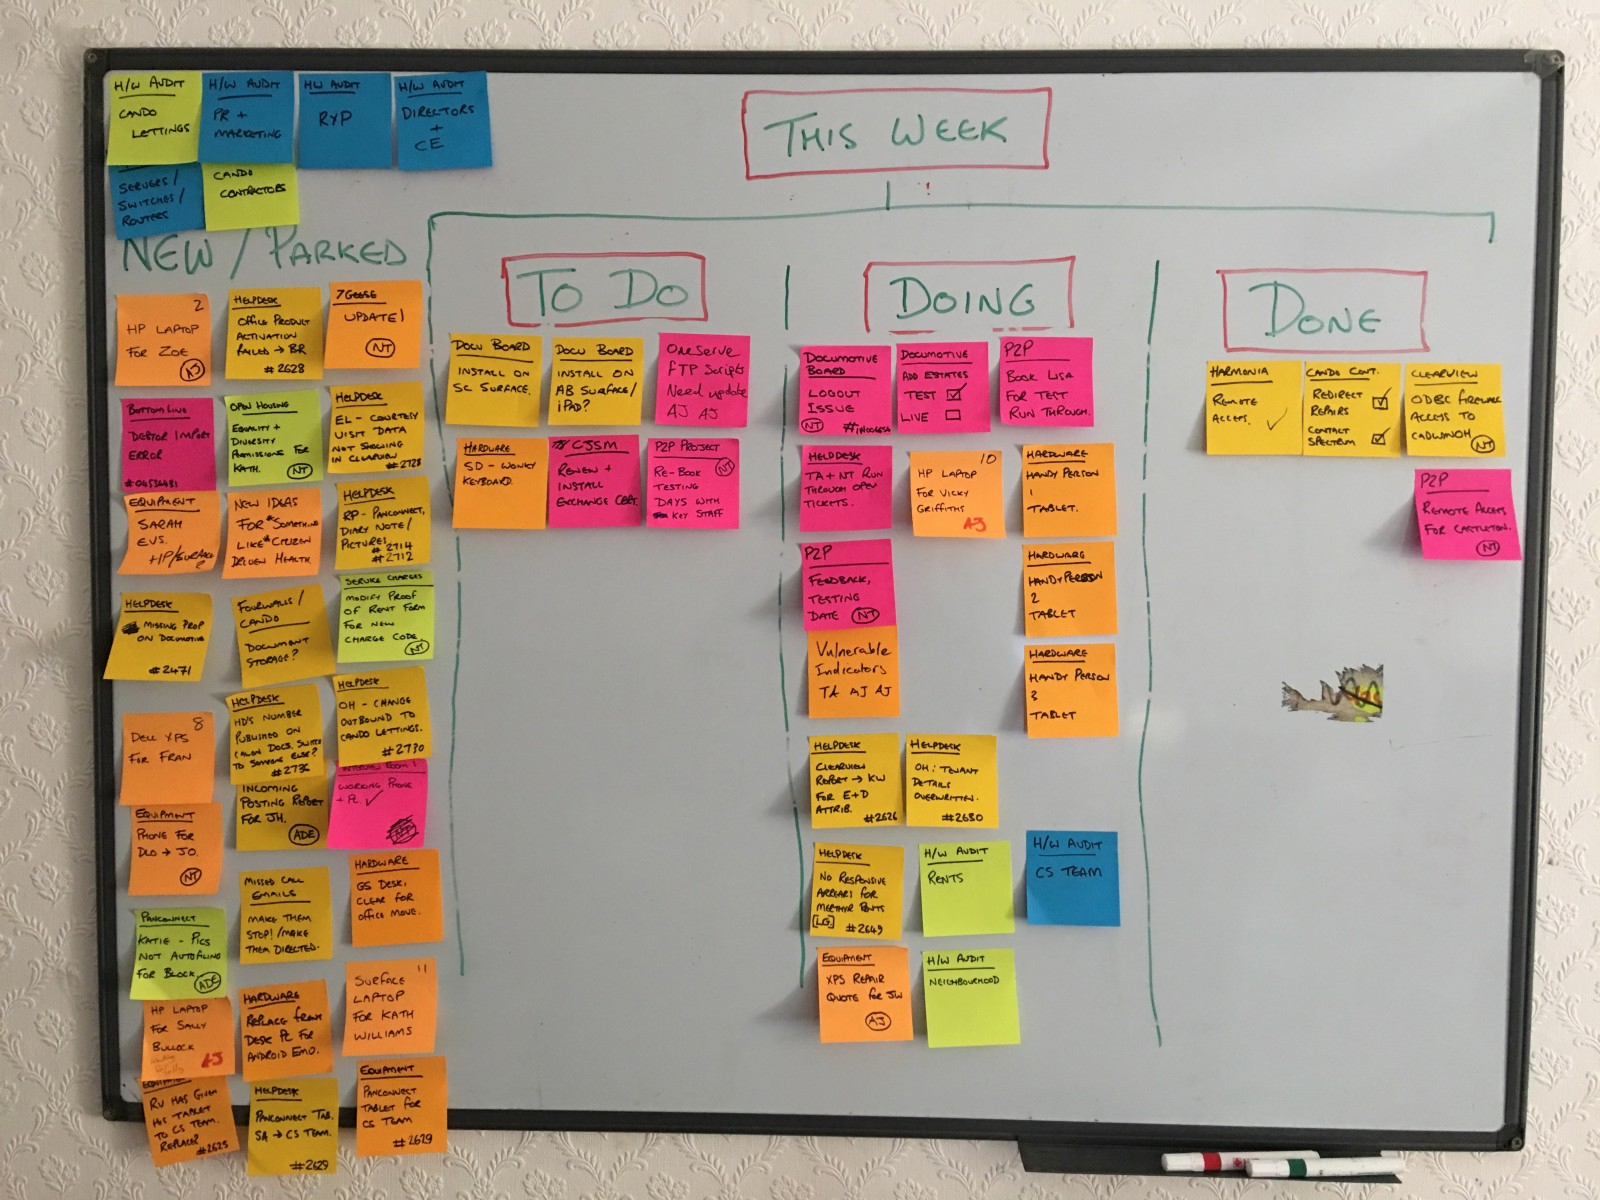 H/W AUDIT
CANDO
LETTINGS
H/W AUDIT
PR +
MARKETING
HW AUDIT
RYP
H/W AUDIT
DIRECTORS
+
CE
SERVERS/
SWITCHES/
ROUTERS
CANDO
CONTRACTORS
THIS WEEK
NEW / PARKED
2
HP LAPTOP
FOR ZOE
AJ
HELPDESK
OFFICE PRODUCT
ACTIVATION
FAILED → BR
#2628
7GEESE
UPDATE!
NT
BOTTOM LINE
DEBTOR IMPORT
ERROR
OPEN HOUSING
EQUALITY +
DIVERSITY
PERMISSIONS FOR
KATH.
NT
HELPDESK
EL - COURTESY
VISIT DATA
NOT SHOWING
IN CLEARVIEW
#2728
EQUIPMENT
SARAH
EVS.
HP/SURFACE
?
NEW IDEAS
FOR "SOMETHING
LIKE" CITIZEN
DRIVEN HEALTH
HELPDESK
RP - PANCONNECT,
DIARY NOTE/
PICTURES
#2714
#2712
HELPDESK
MISSING PROP
ON DOCUMOTIVE
#2471
FOURWALLS/
CANDO
DOCUMENT
STORAGE?
SERVICE CHARGES
MODIFY PROOF
OF RENT FORM
FOR NEW
CHARGE CODE
NT
8
DELL XPS
FOR FRAN
HELPDESK
HD'S NUMBER
PUBLISHED ON
CALON DOCS. SWITCH
TO SOMEONE ELSE?
#2736
HELPDESK
OH - CHANGE
OUTBOUND TO
CANDO LETTINGS.
#2730
EQUIPMENT
PHONE FOR
DLO → JO.
NT
INCOMING
POSTING REPORT
FOR JH.
ADE
INTERVIEW ROOM 1
WORKING PHONE
+ PC ✓
PANCONNECT
KATIE - PICS
NOT AUTOFILING
FOR BLOCK.
ADE
MISSED CALL
EMAILS
MAKE THEM
STOP!/MAKE
THEM DIRECTED.
HARDWARE
GS DESK,
CLEAR FOR
OFFICE MOVE.
HP LAPTOP
FOR SALLY
BULLOCK
AJ
HARDWARE
REPLACE FRONT
DESK PC FOR
ANDROID EMO.
11
SURFACE
LAPTOP
FOR KATH
WILLIAMS
EQUIPMENT
RV HAS GIVEN
HIS TABLET
TO CS TEAM.
REPLACE?
#2625
HELPDESK
PANCONNECT TAB.
SA → CS TEAM.
#2629
EQUIPMENT
PANCONNECT
TABLET FOR
CS TEAM
#2629
TO DO
DOCU BOARD
INSTALL ON
SC SURFACE.
DOCU BOARD
INSTALL ON
AB SURFACE/
IPAD?
OneServe
FTP Scripts
Need update
AJ AJ
HARDWARE
SD - WONKY
KEYBOARD.
CJSM
RENEW +
INSTALL
EXCHANGE CERT.
P2P PROJECT
NT
RE-BOOK
TESTING
DAYS WITH
KEY STAFF
DOING
DOCUMOTIVE
BOARD
LOGOUT
ISSUE
NT
DOCUMOTIVE
ADD ESTATES
TEST ☑
LIVE ☐
P2P
BOOK LISA
FOR TEST
RUN THROUGH.
HELPDESK
TA + NT RUN
THROUGH OPEN
TICKETS.
10
HP LAPTOP
FOR VICKY
GRIFFITHS
AJ
HARDWARE
HANDY PERSON
1
TABLET.
P2P
FEEDBACK,
TESTING
DATE
NT
HARDWARE
HANDY PERSON
2
TABLET
Vulnerable
Indicators
TA AJ AJ
HARDWARE
HANDY PERSON
3
TABLET
HELPDESK
CLEARVIEW
REPORT → KW
FOR E+D
ATTRIB.
#2626
HELPDESK
OH: TENANT
DETAILS
OVERWRITTEN.
#2680
HELPDESK
NO RESPONSIVE
ARREARS FOR
MERTHYR RENTS
LG
#2649
H/W AUDIT
RENTS
H/W AUDIT
CS TEAM
EQUIPMENT
XPS REPAIR
QUOTE FOR JW
AJ
H/W AUDIT
NEIGHBOURHOOD
DONE
HARMONIA
REMOTE
ACCESS. ✓
CANDO CONT.
REDIRECT
REPAIRS ☑
CONTACT
SPECTRUM ☑
CLEARVIEW
ODBC FIREWALL
ACCESS TO
CADWYNOH
NT
P2P
REMOTE ACCESS
FOR CASTLETON.
NT